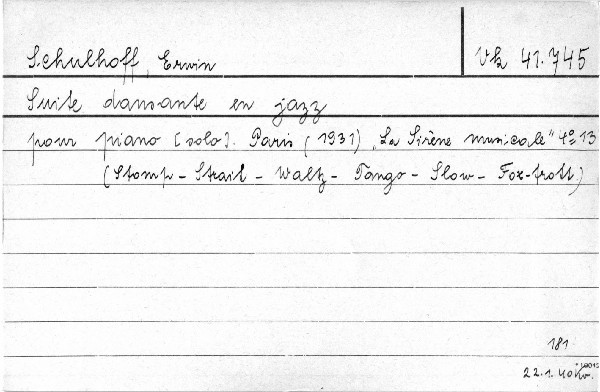 Schulhoff, Erwin
Vk 41.745
Suite dansante en jazz
pour piano [solo]. Paris (1931) „La Sirène musicale" 4º 13
(Stomp - Strait - Waltz - Tango - Slow - Fox-trott)
181
22.1.40